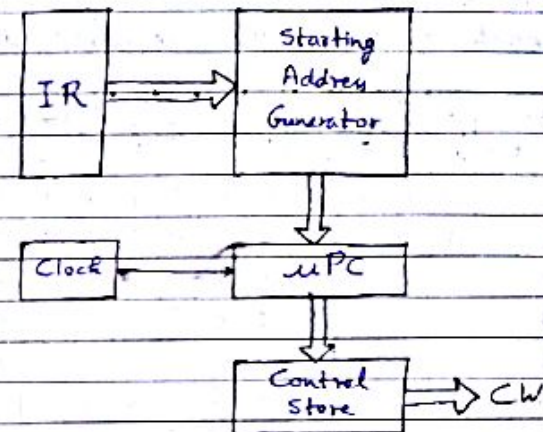 IR
Starting
Address
Generator
Clock
μPC
Control
Store
CW